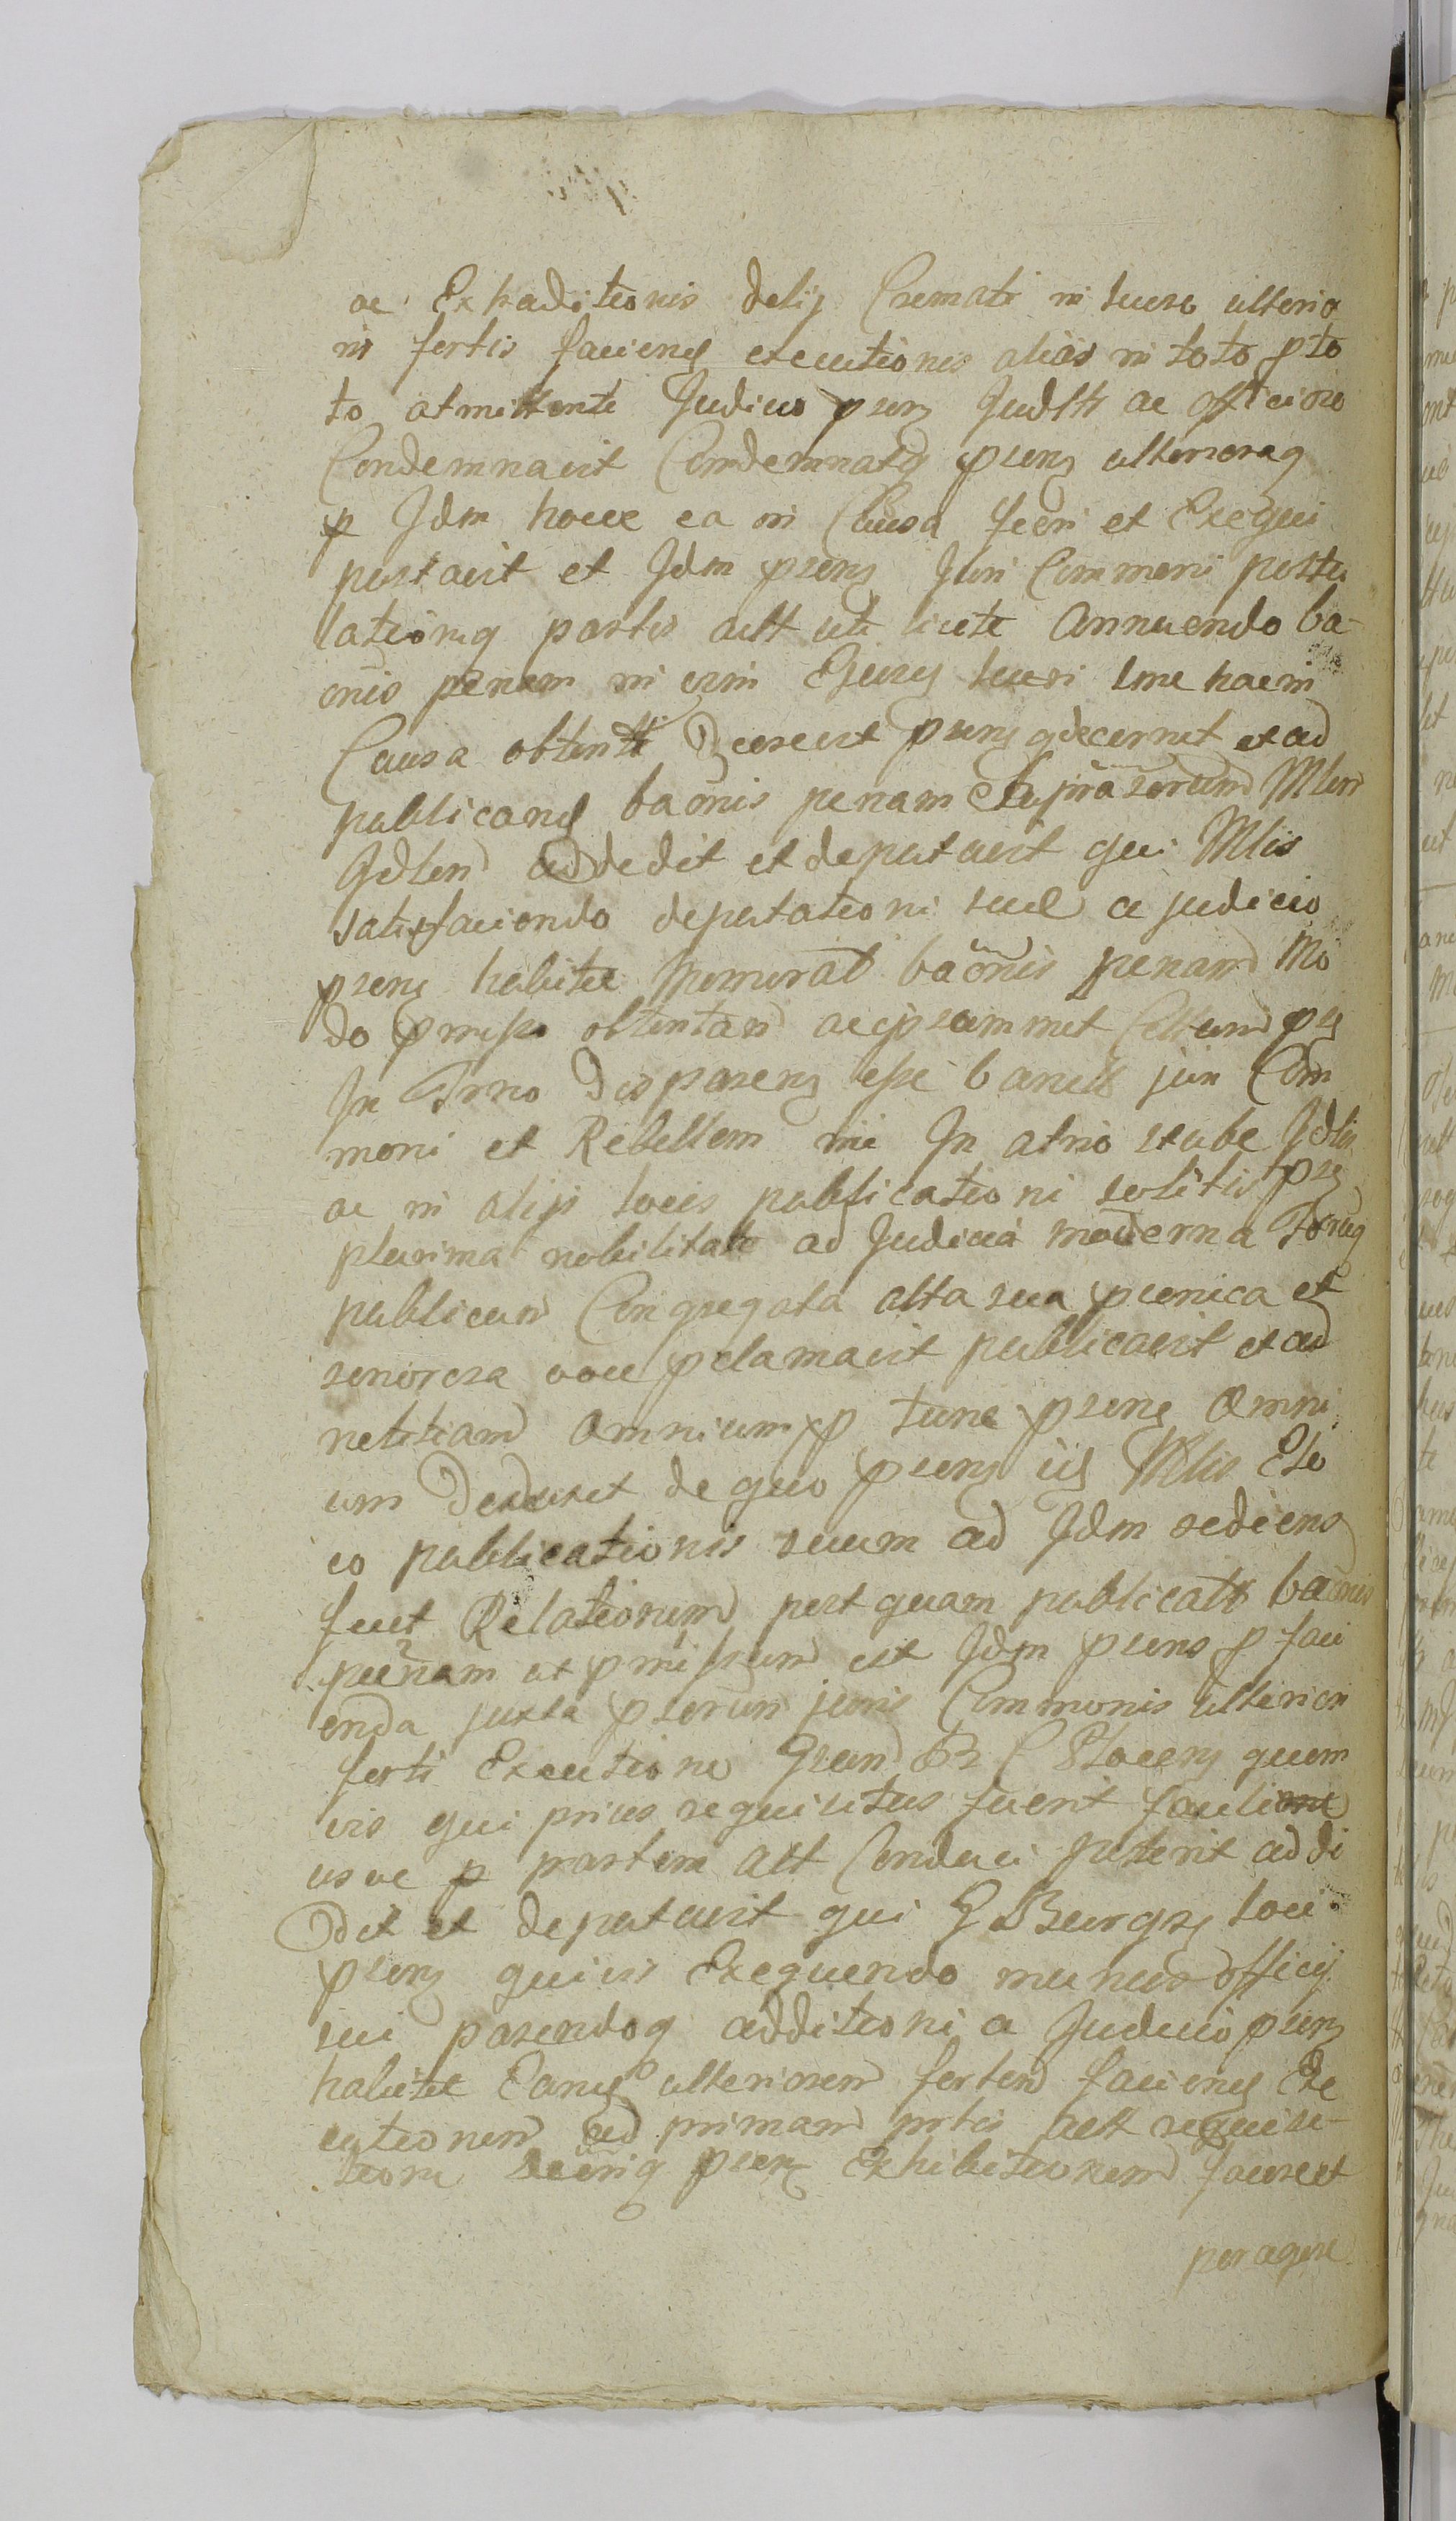 ac Extraditionis delij Cremati in suuso ulterio
ris fortis faciens executionis alias in toto pto
to atmittente Judicio psens Judlti ac officiose
Condemnavit Condemnatq psens ulterioraq
p Jdm hocce ea in Causa fieri et Exequi
postavit et Jdm psens Juri Commoni postu
lationiq partis actt uti iuste annuendo ba-
onis penam in erni Ejusq suuri sme hacin
Causa obtentt Decrevit psens qdecernit et ad
publicand baonis penam Suprasorum Mlem
Gdlem addedit et deputavit qui Mlis
satisfaciendo deputationi suae a judicio
psens habitae memorat baonis penam Mo
do pmisso obtentam acipsammet Cittum ps
In Trno Disparens esse banit juri Com
moni et Rebellem in In atrio stubae Jdlis
ac in alijs locis publicationi solitis ps
plurima nobilitate ad Judicia moderna Torug
publicum Congregata alta sua punica et
sonorosa voce pclamavit publicavit et ad
notitiam omnium p tunc psens omni
um Deduxit de quo psens iis Mlis Elo
co publicationis suum ad Jdm rediens
fecit Relationem post quam publicatt baonis
poenam ut pmissum est Jdm psens p faci
enda juxta psorum juris Commonis ulteriori
forti Executione Gsum Br C Stocens quem
vis qui prius requisitus fuerit facili
usve p partem actt Conduci poterit addi
Dit et deputavit qui G Burgs loci
psens quivis Exequendo munus officij
sui parendoq additioni a Judicio psens
habitae Eans ulteriorem fortem faciens Exe
cutionem ad primam prtis actt requisi-
tionem seu psens Exhibitionem facere et
peragere